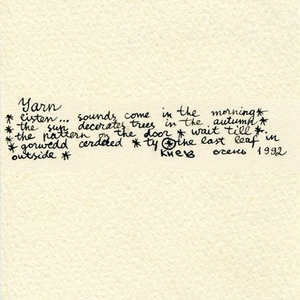 Yarn
* listen... sounds come in the morning *
* the sun decorates trees in the autumn *
* the pattern on the door * wait till *
* ty * the last leaf in
outside * Киев осень 1992